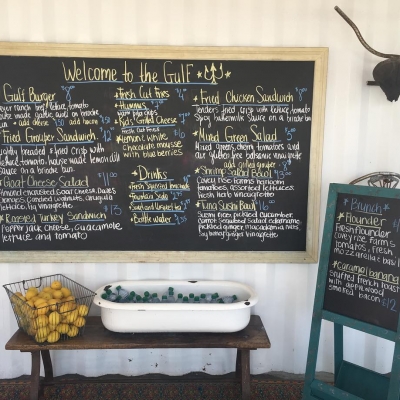 Welcome to the Gulf
Gulf Burger
ranch beef, lettuce, tomato
house made garlic aioli on brioche
add cheese add bacon
Fried Grouper Sandwich 12
lightly breaded & fried crisp with
lettuce, tomato, house made lemon dill
sauce on a brioche bun.
Goat Cheese Salad
Goat Cheese, Dates,
candied walnuts, arugula
Roasted Turkey Sandwich 13
Pepper Jack Cheese, Guacamole
lettuce, and tomato
Fresh Cut Fries
Hummus
warm pita chips
Kid's Grilled Cheese
Fresh Cut Fries
Lemon & white
chocolate mousse
with blueberries
Drinks
Fresh Squeezed lemonade
Fountain Soda
Sweet and Unsweet tea
Bottle water
Fried Chicken Sandwich
tenders fried crisp with lettuce, tomato
spicy buttermilk sauce on a brioche bun
Mixed Green Salad 5
Mixed greens, cherry tomatoes and
our gluten free balsamic vinaigrette
add grilled grouper
Shrimp Salad Bowl 13
Covey rise Farms heirloom
tomatoes, assorted lettuces
fresh herb vinaigrette
Tuna Sushi Bowl 16
Sushi rice, pickled cucumber
carrot, seaweed salad, edamame,
pickled ginger, macadamia nuts,
soy honey ginger vinaigrette
Brunch
Flounder
Fresh flounder
Covey rise Farms
tomatoes, Fresh
mozzarella, basil
Caramel banana
stuffed french toast
with applewood
smoked bacon
12